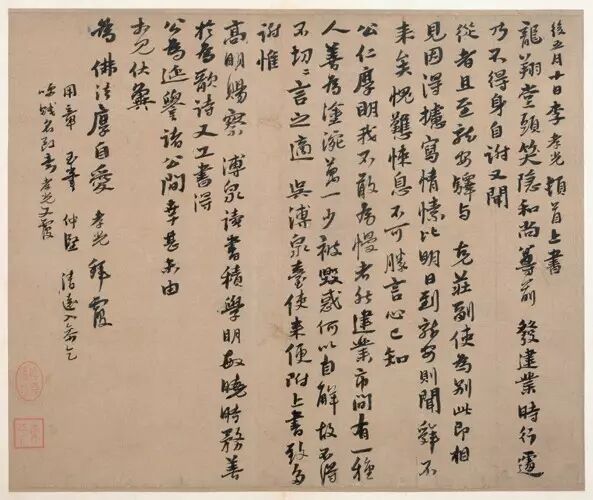 後五月十日李孝光頓首上書
龍翔堂頭笑隱和尚尊前 發建業時行遽
乃不得身自詣又聞
從者且至龍安驛與 克莊副使為別此即相
見因得攄寫情愫比明日到龍安則聞 不
來矣愧 悚息不可勝言心已知
公仁厚明我不敢為慢者然建業市間有一種
人善為塗涴萬一少被毀惑何以自解故不得
不切切言之適 吳溥泉臺使來便附上書致多
謝惟
高明賜察 溥泉讀書積學明敏曉時務善
於為歌詩又工書得
公為延譽諸公間幸甚未由
見伏冀
為佛法厚自愛 孝光拜覆
用章 仲 清遠
名 孝光又覆